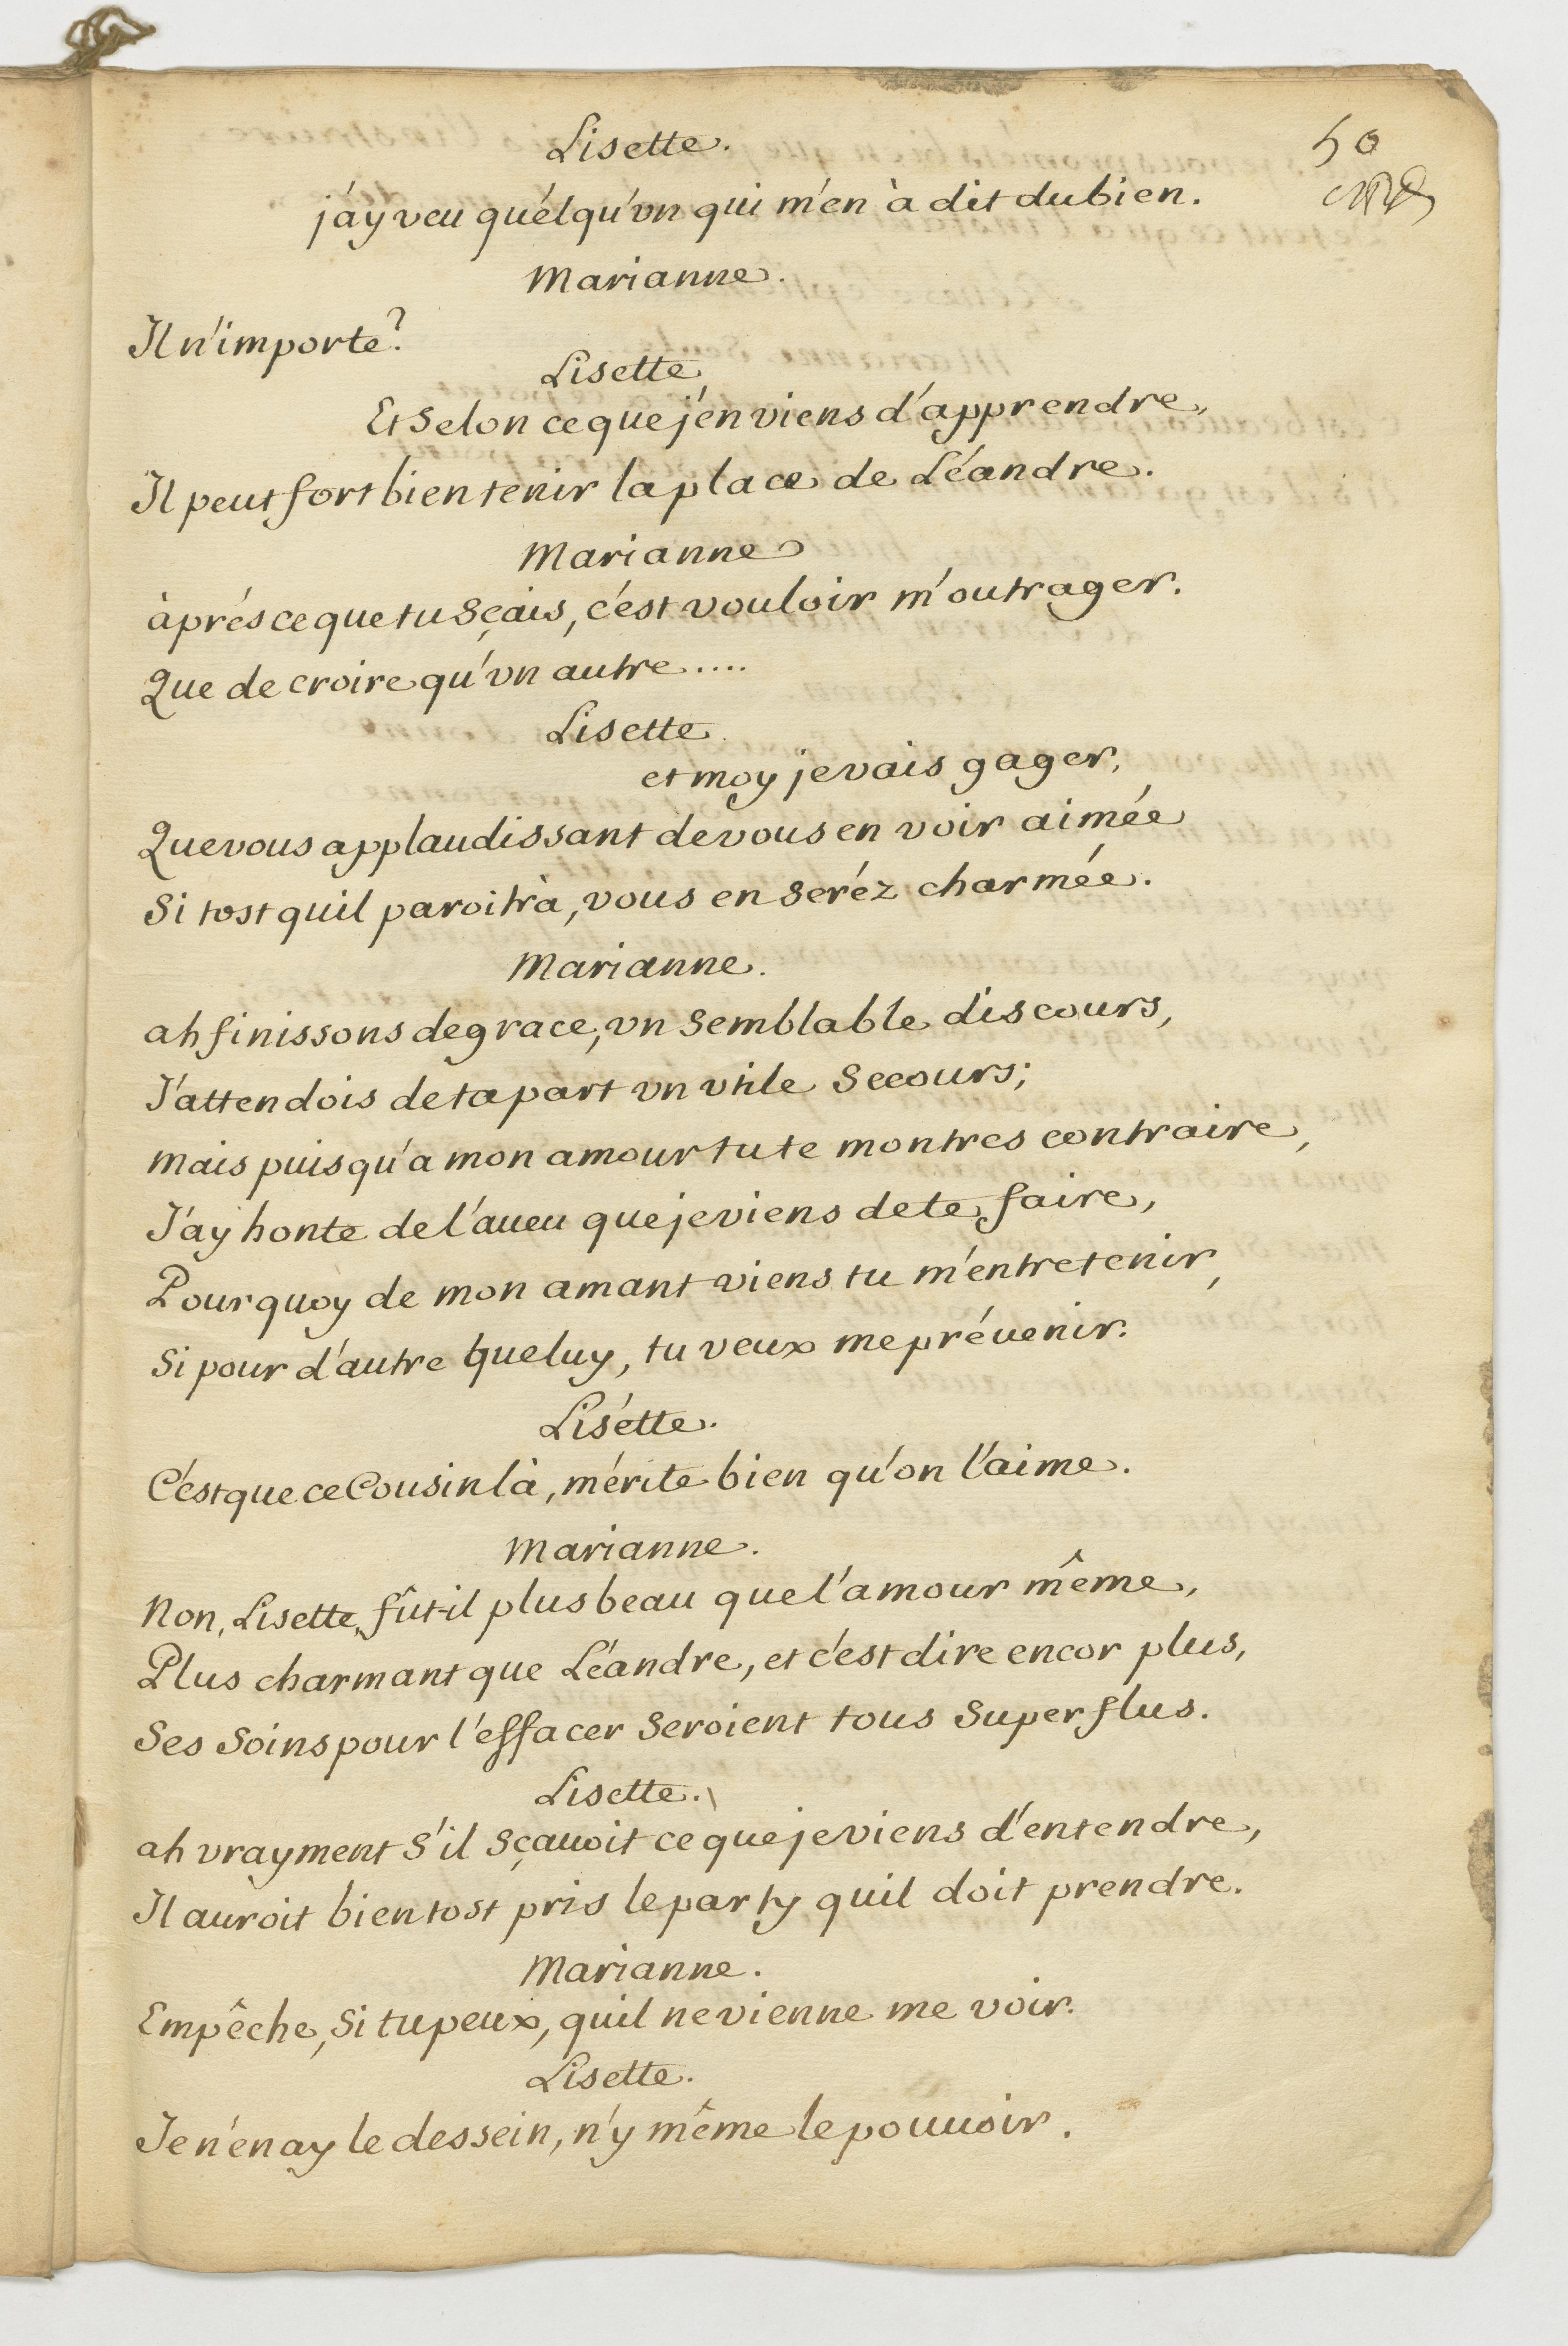 50
Lisette.
j'ay veu quélqu'vn qui m'en à dit du bien.
Marianne.
Il n'importe?
Lisette
Et Selon ce que j'en viens d'apprendre,
Il peut fort bien tenir la place de Léandre.
Marianne
àprés ce que tu Sçais, c'est vouloir m'outrager.
Que de croire qu'vn autre.....
Lisette
et moy je vais gager,
Que vous applaudissant de vous en voir aimée
Si tost quil paroitrà, vous en Seréz charmée.
Marianne.
ah finissons de grace, vn Semblable discours,
J'attendois de ta part vn vtile Secours;
mais puisqu'a mon amour tu te montres contraire,
J'ay honte de l'aueu que je viens de te faire,
Pourquoy de mon amant viens tu m'entretenir,
Si pour d'autre que luy, tu veux me préuenir.
Lisétte.
C'est que ce Cousin là, mérite bien qu'on l'aime.
Marianne.
Non, Lisette, fût-il plus beau que l'amour même,
Plus charmant que Léandre, et c'est dire encor plus,
Ses Soins pour l'effacer Seroient tous Superflus.
Lisette.
ah vrayment S'il Sçauoit ce que je viens d'entendre,
Il auroit bientost pris le party quil doit prendre.
Marianne.
Empêche, Si tu peux, quil ne vienne me voir.
Lisette.
Je n'en ay le dessein, n'y même le pouuoir.